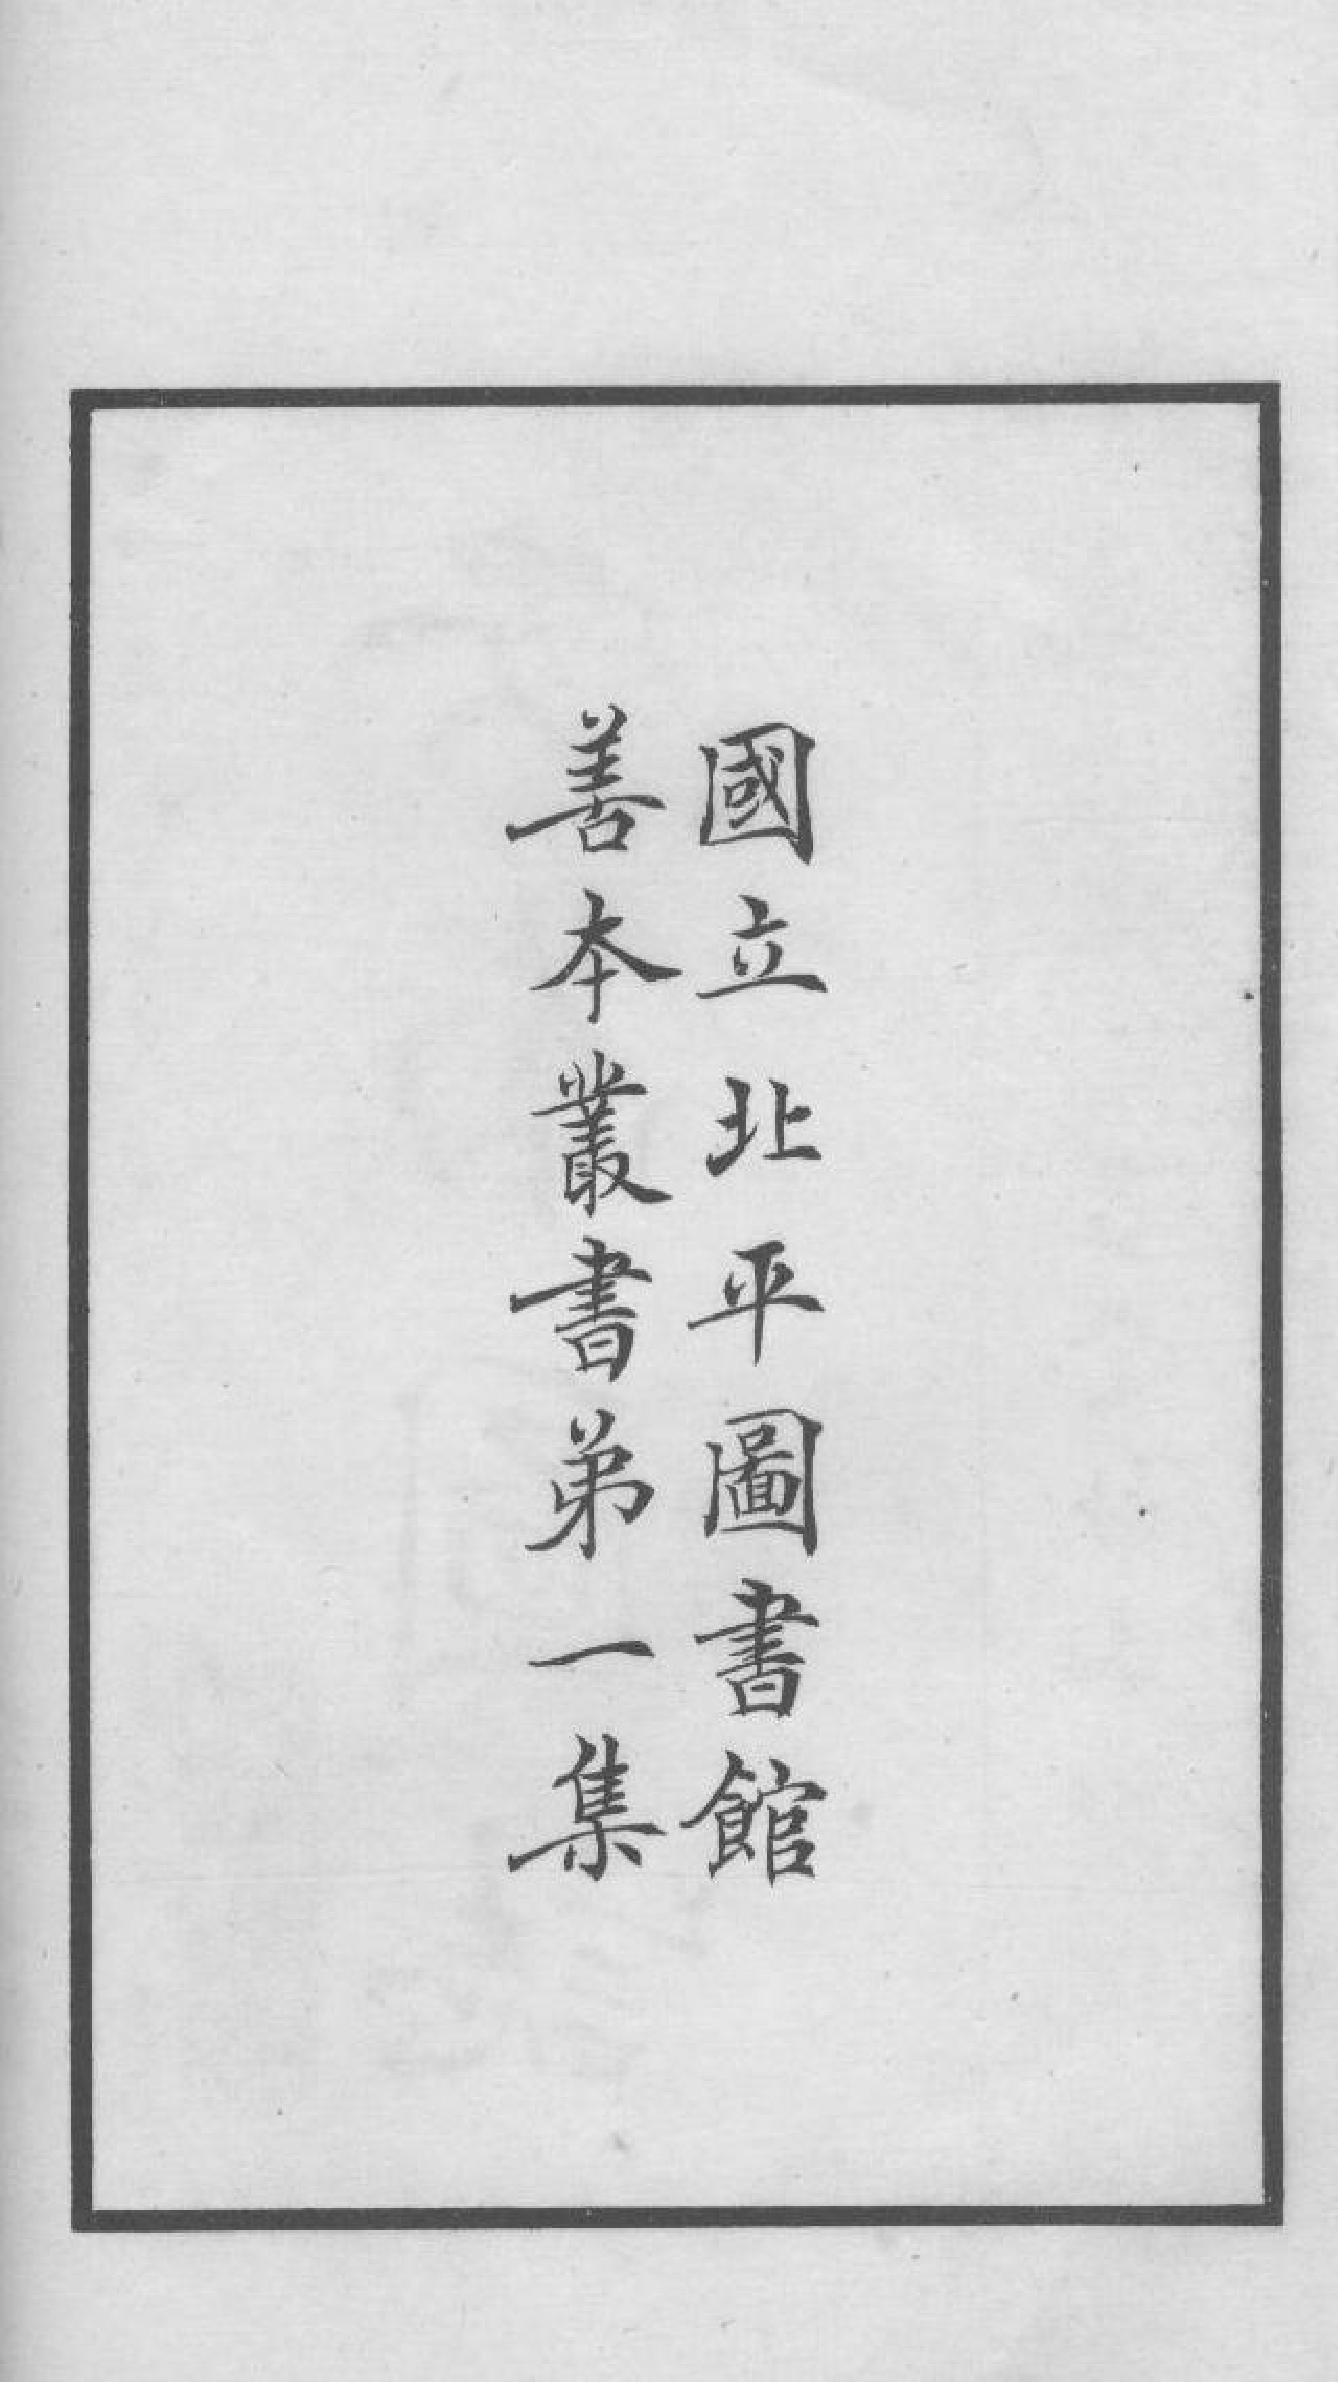 國立北平圖書館
善本叢書弟一集